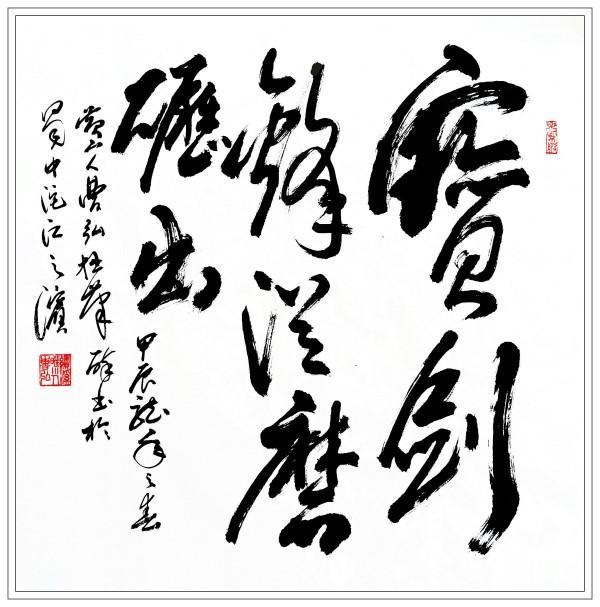 寶劍
鋒從磨
礪出
甲辰龍年之春
山人
弘
書於
蜀中沱江之濱